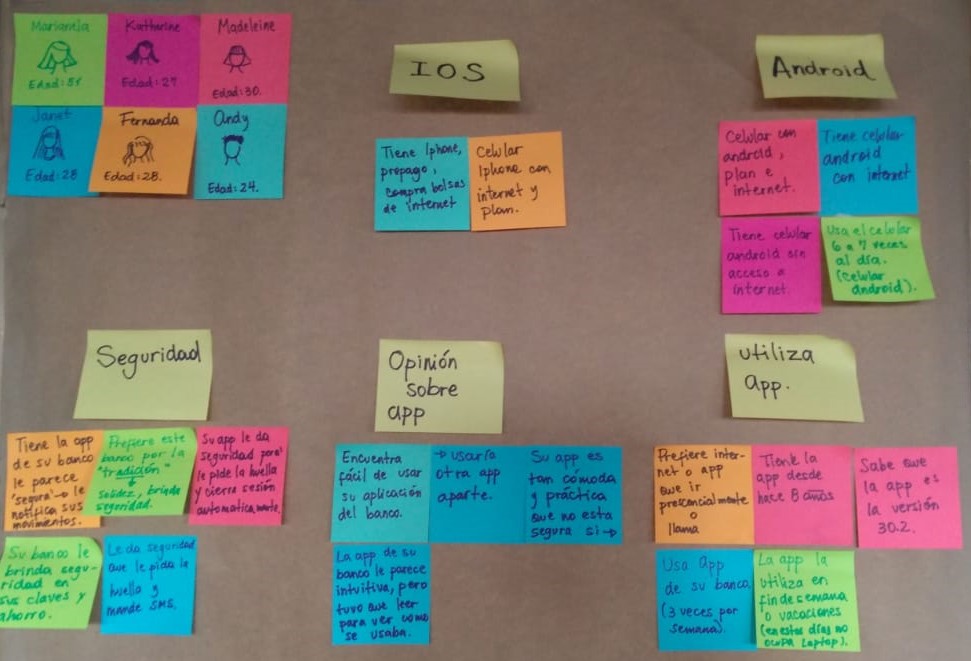 Marianela
Edad: 51
Katharine
Edad: 27
Madeleine
Edad: 30.
Janet
Edad: 28
Fernanda
Edad: 28.
Andy
Edad: 24.
IOS
Tiene Iphone,
prepago,
compra bolsas
de internet
Celular
Iphone con
internet y
plan.
Android
Celular con
android,
plan e
internet.
Tiene celular
android
con internet
Tiene celular
android sin
acceso a
internet.
Usa el celular
6 a 7 veces
al día.
(celular
android).
Seguridad
Tiene la app
de su banco
le parece
"segura" → le
notifica sus
movimientos.
Prefiere este
banco por la
"tradición"
↓
solidez, brinda
seguridad.
Su app le da
seguridad porq'
le pide la huella
y cierra sesión
automaticamente.
Su banco le
brinda segu-
ridad en
sus claves y
ahorro.
Le da seguridad
que le pida la
huella y
mande SMS.
Opinión
sobre
app
Encuentra
fácil de usar
su aplicación
del banco.
→ usaría
otra app
aparte.
Su app es
tan cómoda
y práctica
que no esta
segura si →
La app de su
banco le parece
intuitiva, pero
tuvo que leer
para ver como
se usaba.
utiliza
app.
Prefiere inter-
net o app
que ir
presencialmente
o
llama
Tiene la
app desde
hace 8 años
Sabe que
la app es
la versión
30.2.
Usa app
de su banco,
(3 veces por
semana).
La app la
utiliza en
fin de semana
o vacaciones
(en estos días no
ocupa laptop).